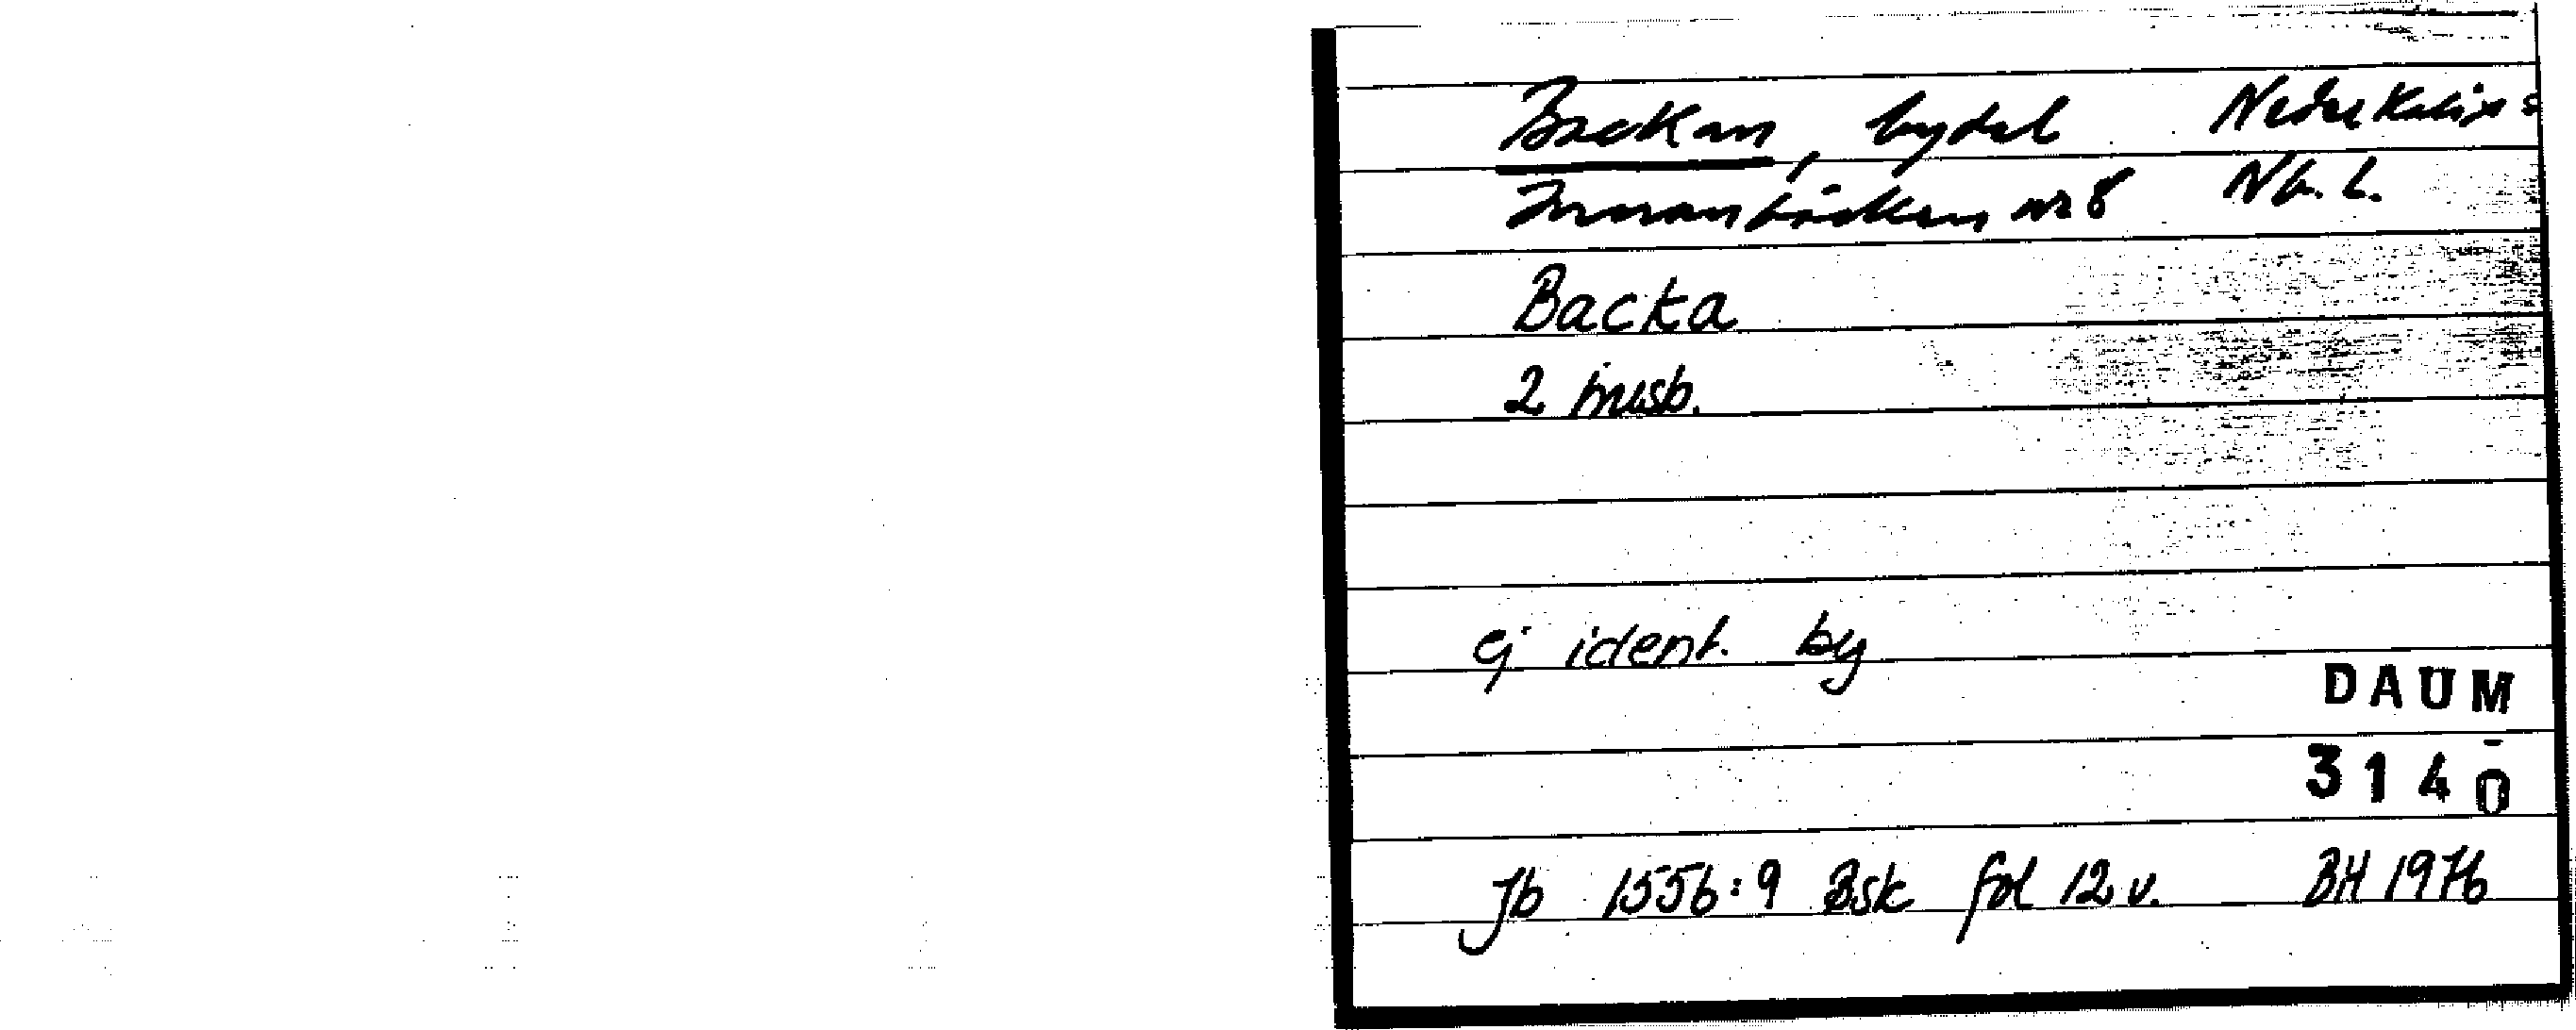 Backan, bydel Nederkalix s
Innanbäcken nr 8 Nb. L.
Backa
2 husb.
ej ident. by
DAUM
3140
Jb 1556:9 Bsk fol 12 v. BH 1976